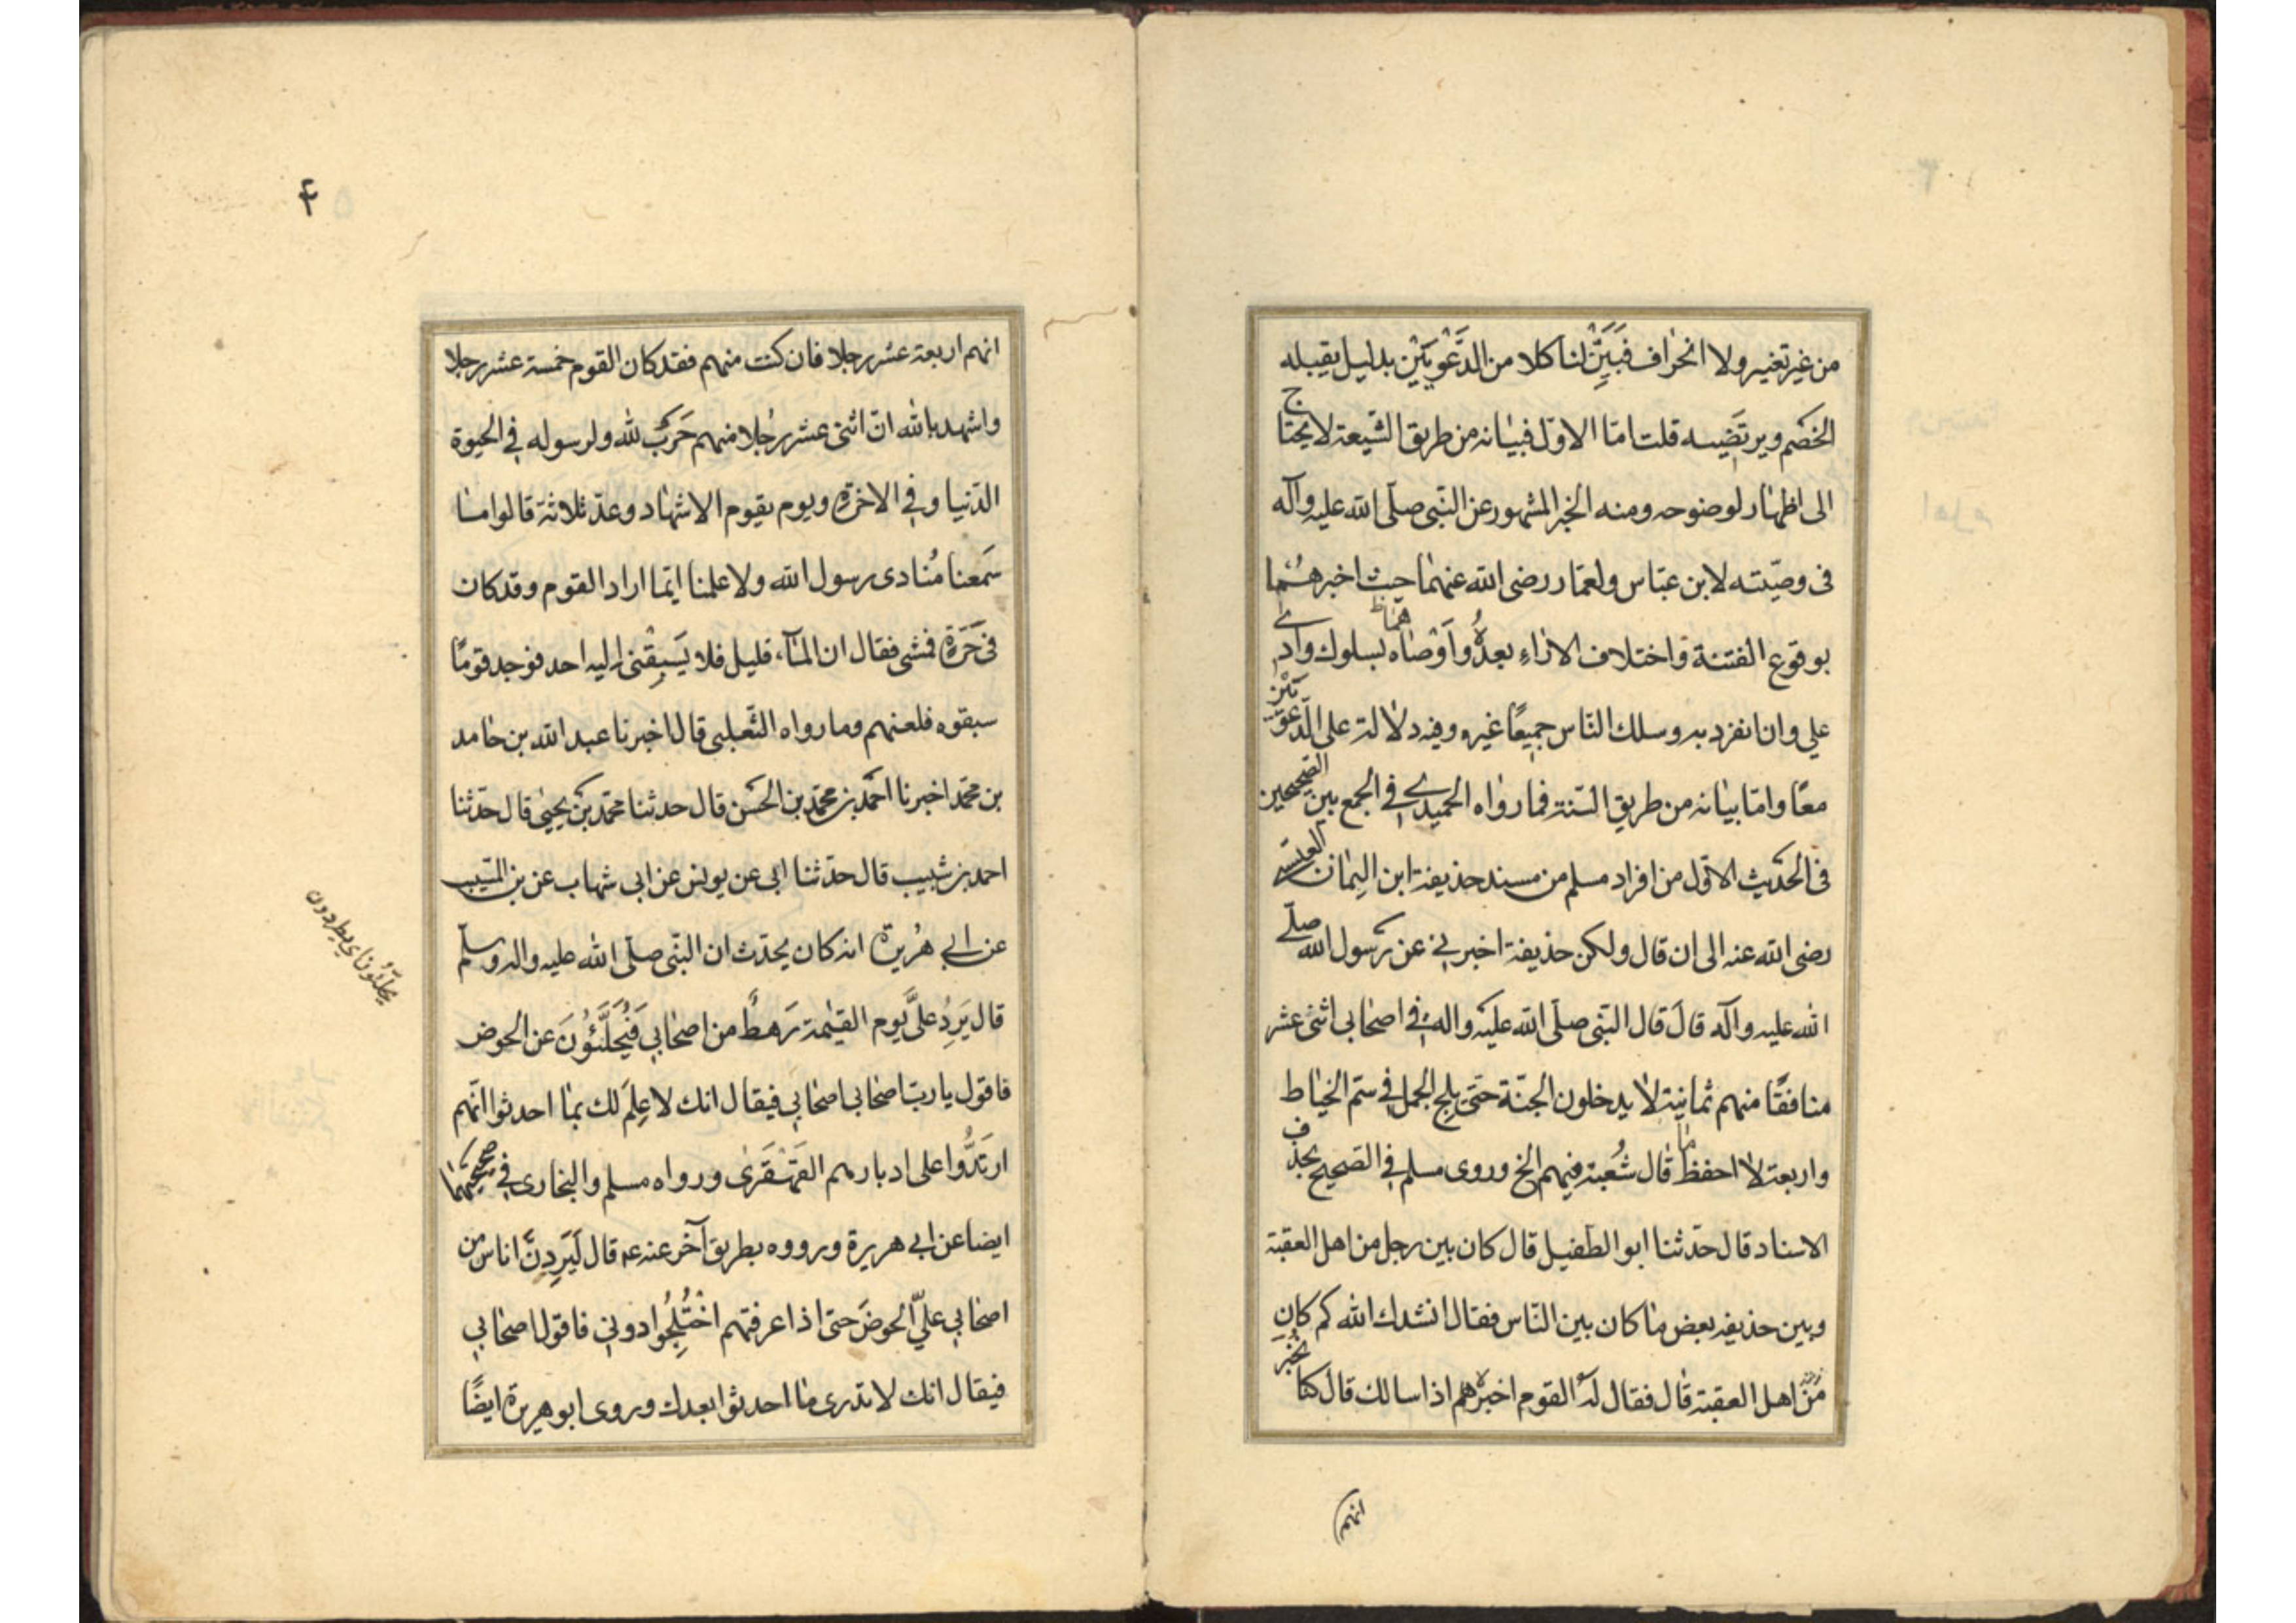 من غير تغيير ولا انحراف فبَيِّنْ لنا كلا من الدَّعْوتَيْن بدليل يقبله
الخصم ويرتضيه قلت امّا الاوّل فبيانه من طريق الشيعة لا يحتاج
الى اظهار لوضوحه ومنه الخبر المشهور عن النّبى صلّى الله عليه وآله
فى وصيّته لابن عبّاس ولعمّار رضى الله عنهما حيث اخبرهُما
بوقوع الفتنة واختلاف الاراء بعدهُ واَوْصاه هما ط بسلوك وادى
علي وان انفرد به وسلك النّاس جميعًا غيره وفيه دلالة على الدّعوتَيْن
معًا وامّا بيانه من طريق السّنة فما رواه الحميدي في الجمع بين الصحيحين
فى الحديث الاوّل من افراد مسلم من مسند حذيفة ابن اليمان العبسى
رضى الله عنه الى ان قال ولكن حذيفة اخبرنى عن رسول الله صلّى
الله عليه وآله قالَ قال النّبى صلّى الله عليه واله فى اصحابى اثنى عشر
منافقًا منهم ثمانية لا يدخلون الجنّة حتى يلج الجمل فى سمّ الخياط
واربعة لا احفظ ما قال شُعبة فيهم الخ وروى مسلم فى الصحيح بحذف
الاسناد قال حدّثنا ابو الطفيل قال كان بين رجل من اهل العقبة
وبين حذيفه بعض ما كان بين النّاس فقال انشدك الله كم كان
مَنْ اهل العقبة قال فقال لهُ القوم اخبرهم اذا سالك قال كنا نُخْبَرُ
انهم
۴
انهم اربعة عشر رجلا فان كنت منهم فقد كان القوم خمسة عشر رجلا
واشهد بالله انّ اثنى عشر رجلا منهم حَرْبٌ لله ولرسوله في الحيوة
الدّنيا وفي الاخرة ويوم يقوم الاشهاد وعدّ ثلاثة قالوا ما
سَمعنا مُنادى رسول الله ولا علمنا ايّما اراد القوم وقد كان
فى حَرّة فمشى فقال ان المآء قليل فلا يَسبِقْنى اليه احد فوجد قومًا
سبقوه فلعنهم وما رواه الثّعلبى قال اخبرنا عبد الله بن حامد
بن محمّد اخبرنا احمد بن محمّد بن الحسن قال حدثنا محمّد بن يحيى قال حدّثنا
احمد بن شبيب قال حدّثنا ابى عن يونس عن ابى شهاب عن بن المسيب
عن ابي هُريرة انه كان يحدّث ان النّبى صلّى الله عليه واله وسلّم
قال يَرِدُ علىَّ يَوم القيٰمة رَهطٌ من اصحٰابي فَيُحَلَّئُونَ عن الحوض
فاقول يا ربّ اصحابى اصحابي فيقال انك لا عِلمَ لك بما احدثوا انّهم
ارتَدُّوا على ادبارهم القَهْقَرى ورواه مسلم والبخارى في صحيحيهما
ايضا عن ابى هريرة ورووه بطريق آخر عنه عه قال لَيَرِدَنَّ اناس من
اصحابي عليّ الحوضَ حتى اذا عرفتهم اخْتُلِجُوا دونى فاقول اصحابي
فيقال انك لا تدرى ما احدثوا بعدك وروى ابو هريرة ايضًا
يحلّئون اي يطردون